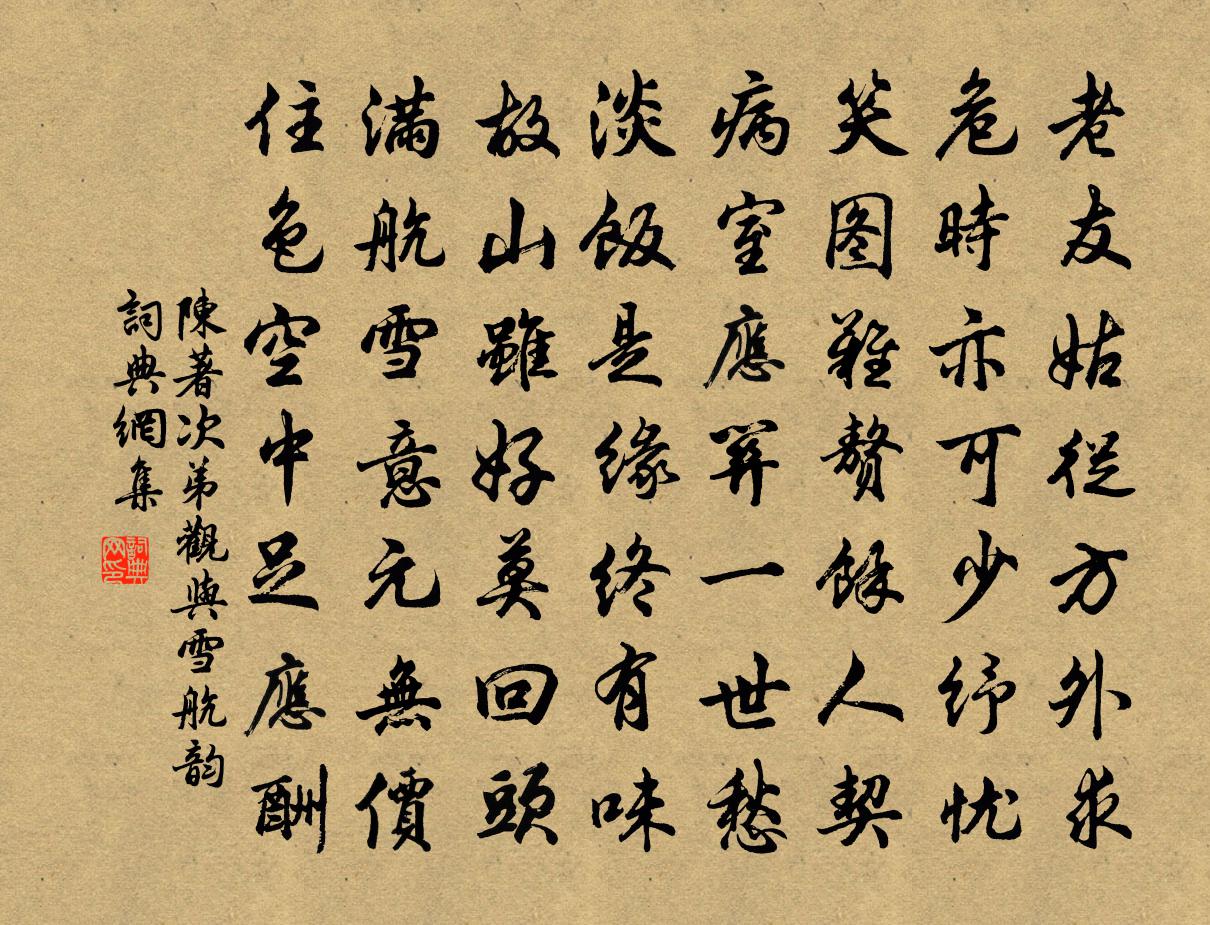 老友姑從方外求
危時亦可少紓忧
笑图難贅餘人契
病室應開一世愁
淡飯是緣終有味
故山雖好莫回頭
滿航雪意元無價
住色空中足應酬
陳著次弟觀與雪航韵
詞典網集
詞典网印